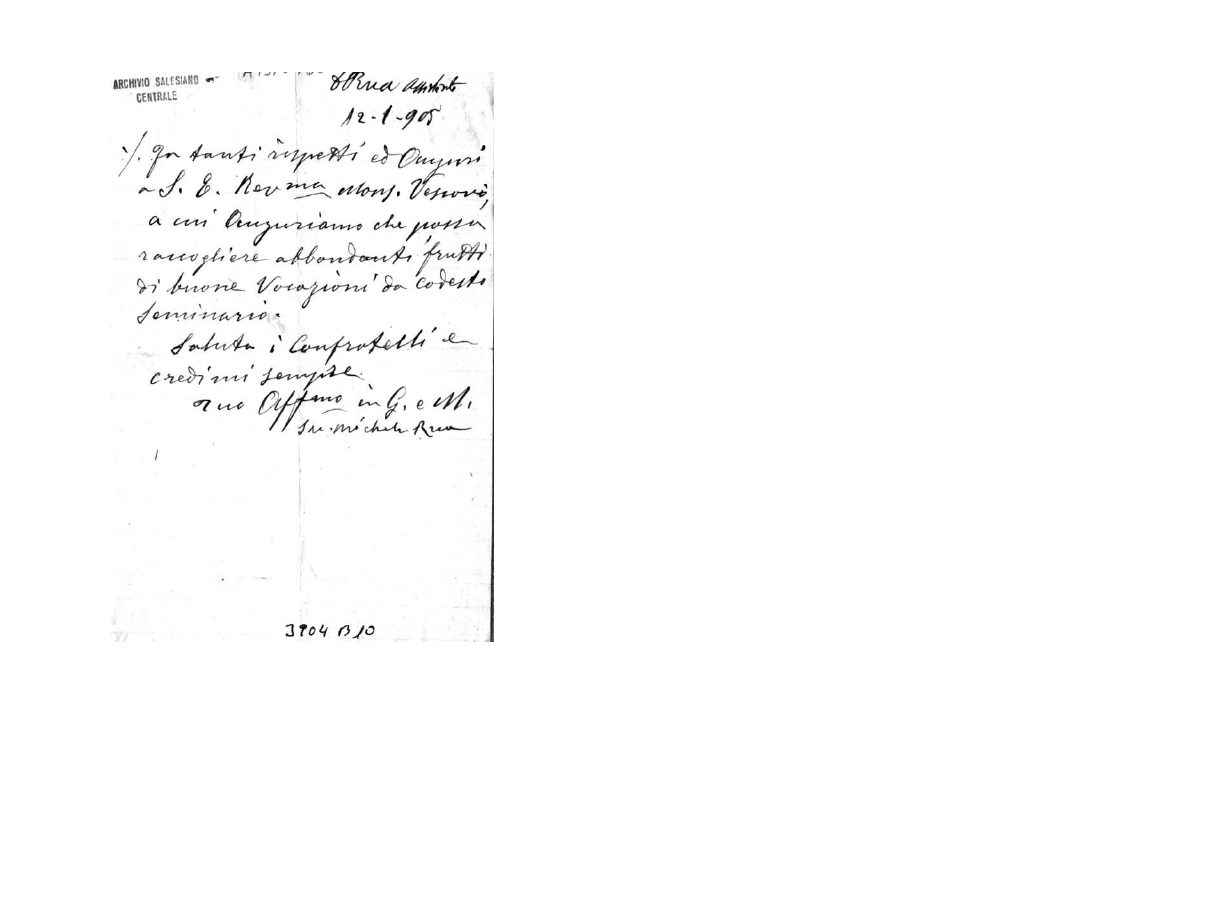 ARCHIVIO SALESIANO
CENTRALE
D Rua
12-1-905
./. Fa tanti rispetti ed Auguri
a S. E. Revma Mons. Vescovo,
a cui Auguriamo che possa
raccogliere abbondanti frutti
di buone Vocazioni da codesto
Seminario.
Saluta i Confratelli e
credimi sempre
tuo Affmo in G. e M.
Sac. Michele Rua
3904 B10